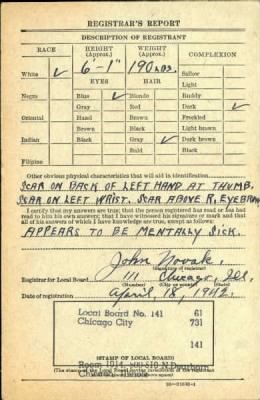 REGISTRAR'S REPORT
DESCRIPTION OF REGISTRANT
RACE HEIGHT (Approx.) WEIGHT (Approx.) COMPLEXION
White ✓ 6'-1" 190 LBS. Sallow
EYES HAIR Light
Negro Blue ✓ Blonde Ruddy
Gray Red Dark ✓
Oriental Hazel Brown Freckled
Brown Black Light brown
Indian Black Gray ✓ Dark brown
Bald Black
Filipino
Other obvious physical characteristics that will aid in identification
SCAR ON BACK OF LEFT HAND AT THUMB.
SCAR ON LEFT WRIST. SCAR ABOVE R. EYEBROW
I certify that my answers are true; that the person registered has read or has had
read to him his own answers; that I have witnessed his signature or mark and that
all of his answers of which I have knowledge are true, except as follows:
APPEARS TO BE MENTALLY SICK.
John Novak
(Signature of registrar)
Registrar for Local Board 111 Chicago, Ill.
(Number) (City or county) (State)
Date of registration April 18, 1942
Local Board No. 141 61
Chicago City 731
141
(STAMP OF LOCAL BOARD)
Room 1014, 510 N. Dearborn